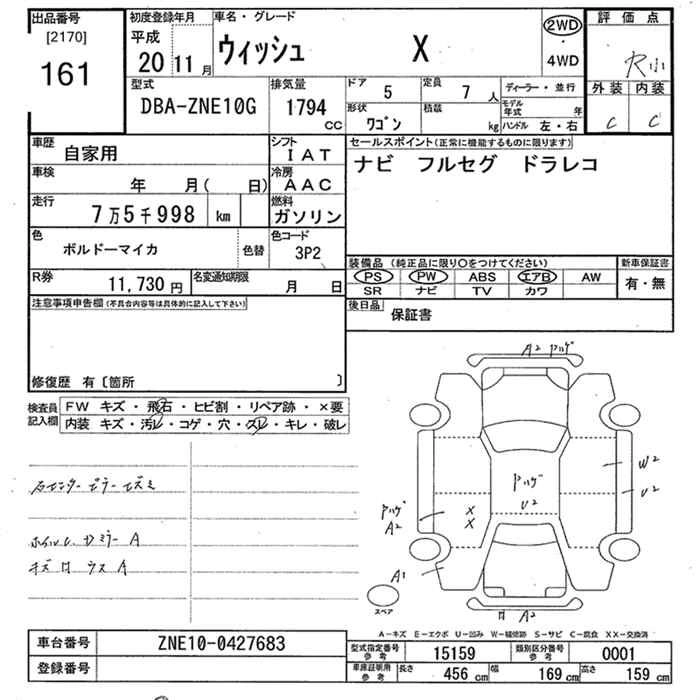 出品番号 初度登録年月 車名・グレード 2WD・4WD 評価点
[2170] 161 平成 20 11月 ウィッシュ X R小
型式 排気量 ドア 5 定員 7人 ディーラー・並行 外装 内装
DBA-ZNE10G 1794 CC 形状 ワゴン 積載 kg モデル年式 年 ハンドル 左・右 C C
車歴 自家用 シフト IAT セールスポイント(正常に機能するものに限ります)
車検 年 月( 日) 冷房 AAC ナビ フルセグ ドラレコ
走行 7万5千998 km 燃料 ガソリン
色 ボルドーマイカ 色替 色コード 3P2
装備品 (純正品に限り〇をつけてください) 新車保証書
PS PW ABS エアB AW 有・無
SR ナビ TV カワ
R券 11,730円 名変通知期限 月 日
注意事項申告欄(不具合内容等は具体的に記入して下さい) 後日品 保証書
修復歴 有〔箇所 〕
検査員記入欄 FW キズ・飛石・ヒビ割・リペア跡・×要
内装 キズ・汚レ・コゲ・穴・スレ・キレ・破レ
A2 ハゲ
W2
U2
ハゲ
U2
ハゲ
A2
X
X
A1
A2
右センターピラー
ミラー A
キズ
A
スペア
A-キズ E-エクボ U-凹み W-補修跡 S-サビ C-腐食 XX-交換済
車台番号 ZNE10-0427683 型式指定番号 参考 15159 類別区分番号 参考 0001
登録番号 車庫証明用 参考 長さ 456cm 幅 169cm 高さ 159cm